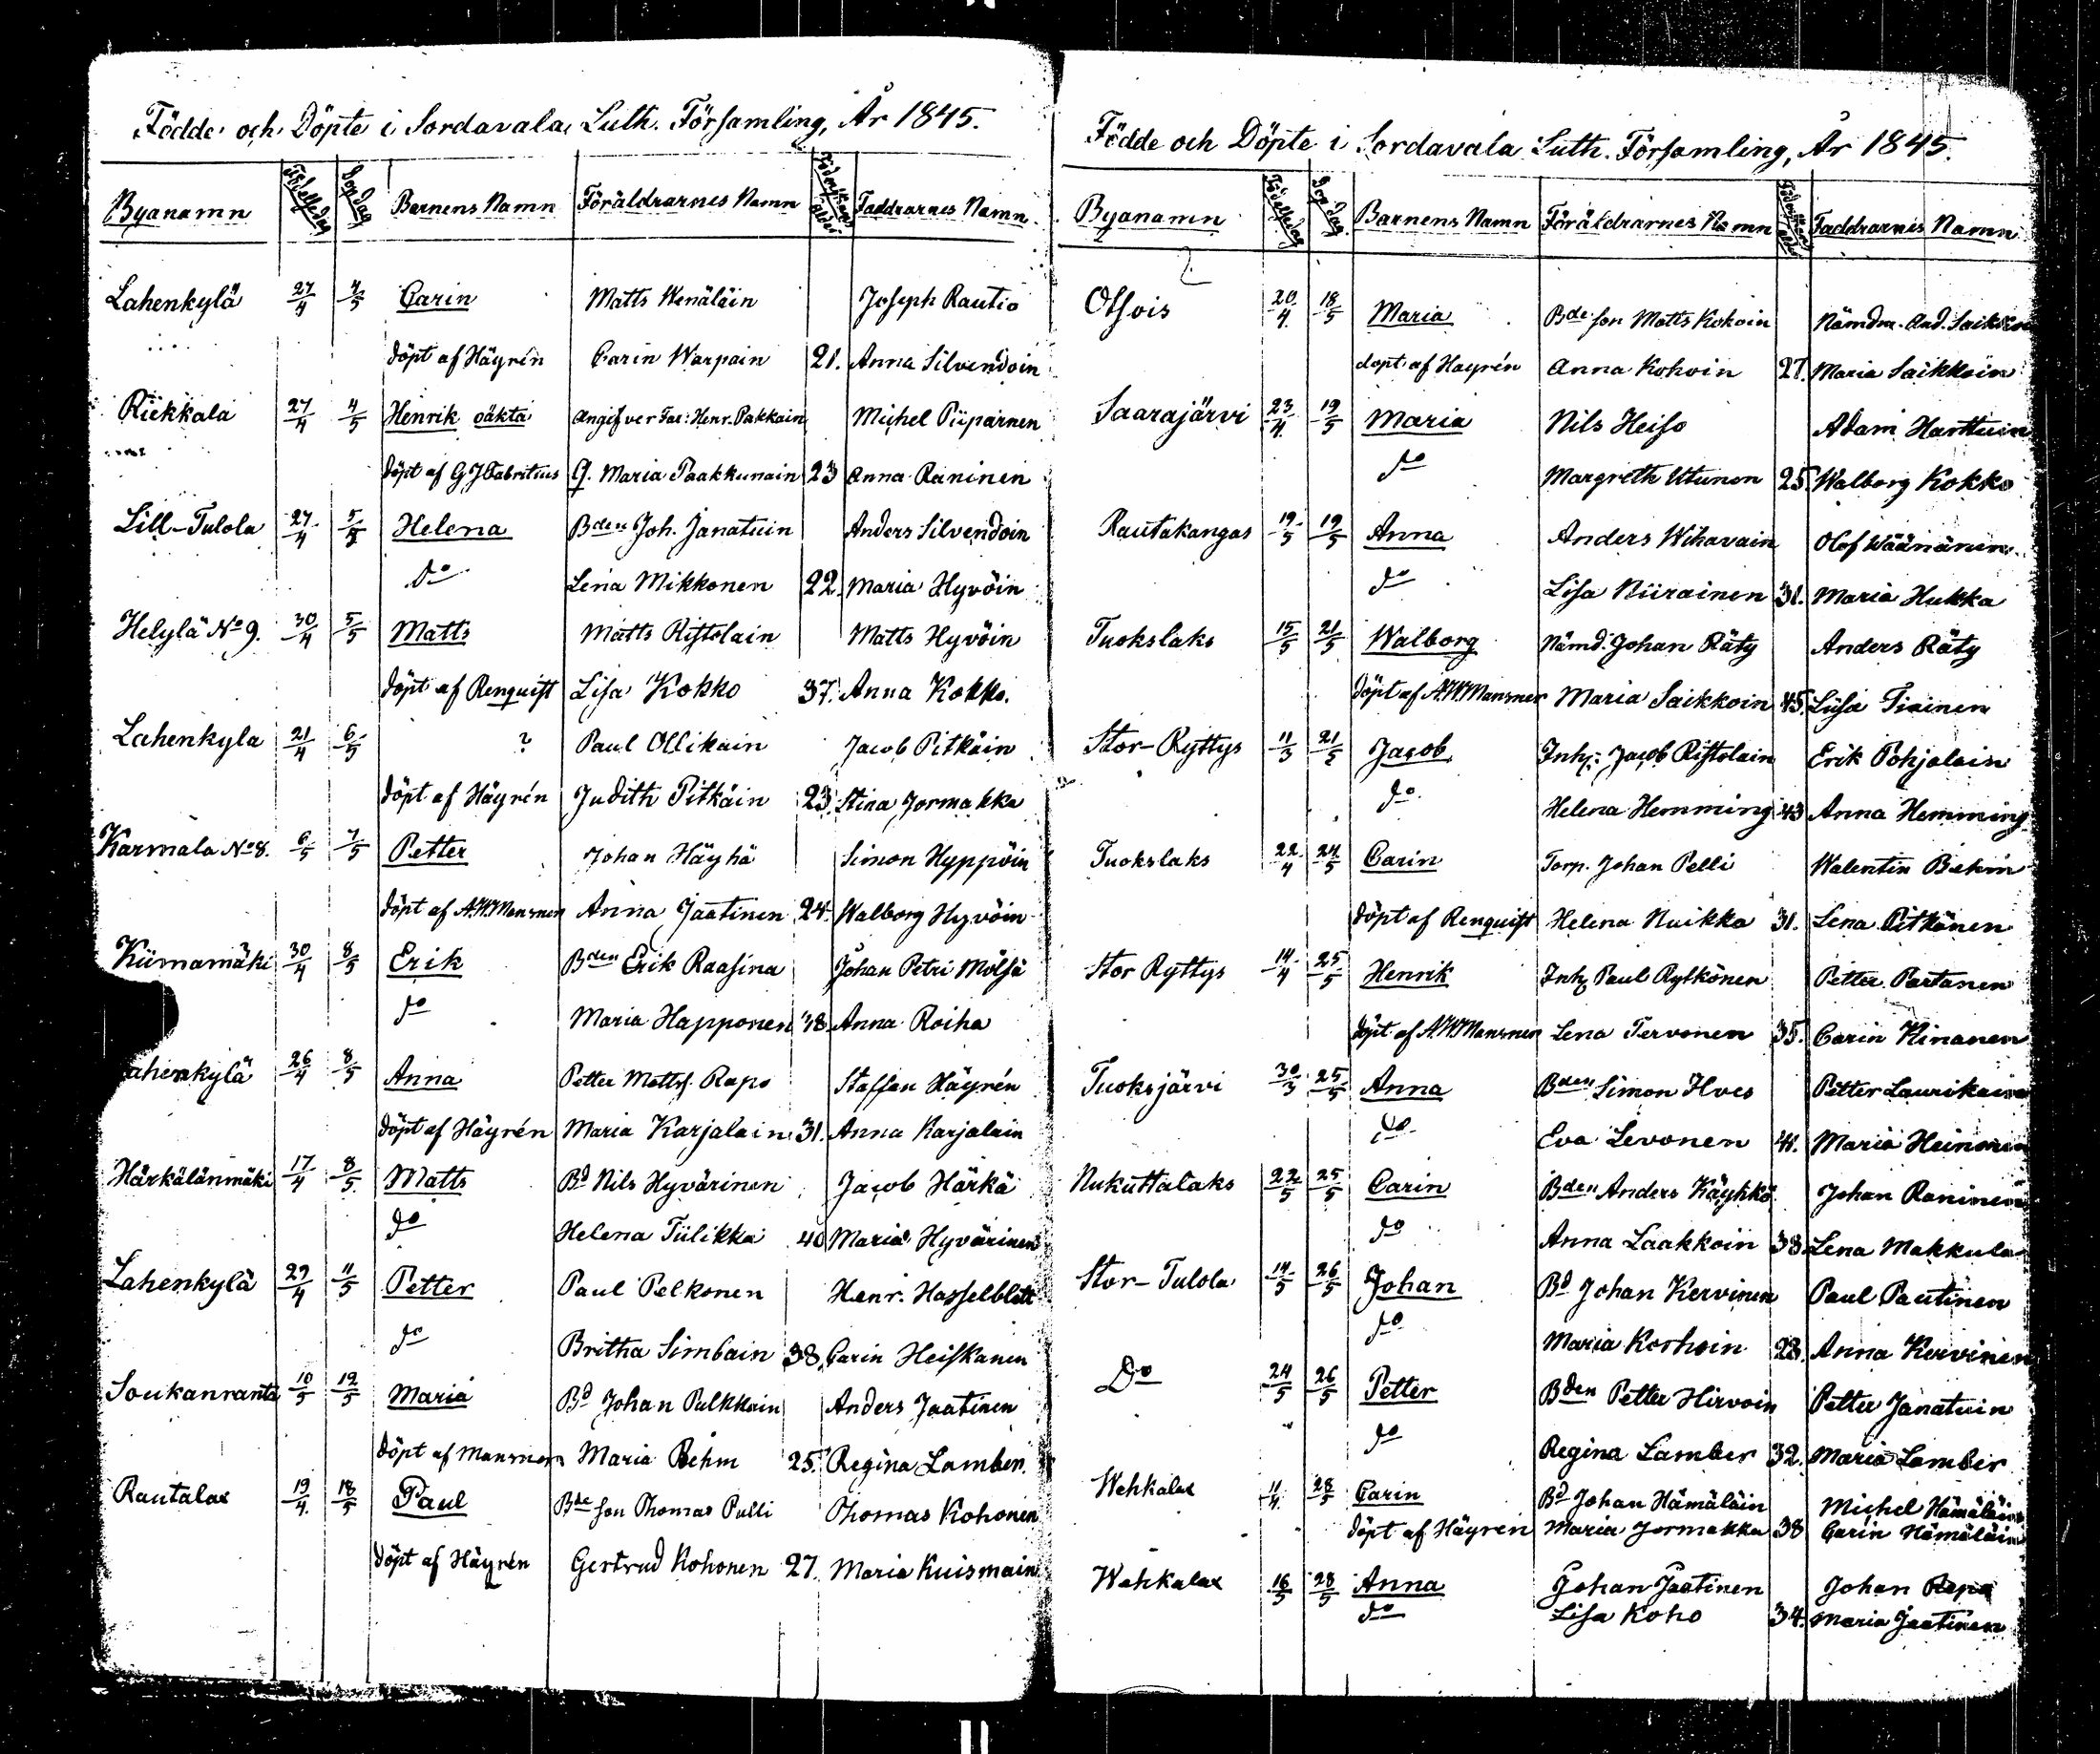 Födde och Döpte i Sordavala Luth. Församling, År 1845.
Byanamn Födelsedag Dopdag Barnens Namn Föräldrarnes Namn Faddrarnes Namn
Lahenkylä 27/4 4/5 Carin Matts Wenäläin Joseph Rautio
döpt af Häyrén Carin Warpain 21. Anna Silvendoin
Riekkala 27/4 4/5 Henrik oäkta Angifver Far: Henr. Pakkain Michel Piiparinen
döpt af G J Fabritius Q. Maria Paakkunain 23 Anna Raninen
Lill-Tulola 27/4 5/5 Helena Bden Joh. Janatuin Anders Silvendoin
do Lena Mikkonen 22. Maria Hyvöin
Helylä No 9. 30/4 5/5 Matts Matts Ristolain Matts Hyvöin
döpt af Renquist Lisa Kokko 37. Anna Kokko.
Lahenkyla 21/4 6/5 ? Paul Ollikain Jacob Pitkäin
döpt af Häyrén Judith Pitkäin 23. Stina Jormakka
Karmala No 8. 6/5 7/5 Petter Johan Häyhä Simon Hyppöin
döpt af A.W.Mansner Anna Jaatinen 24. Walborg Hyvöin
Kiimamäki 30/4 8/5 Erik Bden Erik Raasina Johan Petri Mölsä
do Maria Happonen 38. Anna Roiha
ahenkylä 26/4 8/5 Anna Petter Mattsf. Rapo Staffan Häyrén
döpt af Häyrén Maria Karjalain 31. Anna Karjalain
Härkälänmäki 17/4 8/5 Matts Bd Nils Hyvärinen Jacob Härkä
do Helena Tiilikka 40 Maria Hyvärinen
Lahenkylä 29/4 11/5 Petter Paul Pelkonen Henr. Hasselblatt
do Britha Simbain 38, Carin Heiskanen
Soukanranta 10/5 12/5 Maria Bd Johan Pulkkain Anders Jaatinen
döpt af Mansner Maria Behm 25. Regina Lamber.
Rautalax 19/4 18/5 Paul Bde son Thomas Pulli Thomas Kohonen
döpt af Häyrén Gertrud Kohonen 27. Maria Kuismain
Födde och Döpte i Sordavala Luth. Församling, År 1845.
Byanamn Födelsedag Dopdag Barnens Namn Föräldrarnes Namn Faddrarnes Namn
Otsois 20/4 18/5 Maria Bde son Matts Kokoin Nämdm. And.
döpt af Hayrén Anna Kohoin 27. Maria Saikkoin
Saarajärvi 23/4 19/5 Maria Nils Heiso Adam Harttuin
do Margreth Utunen 25. Walborg Kokko
Rautakangas 19/5 19/5 Anna Anders Wihavain Olof Wäänänen
do Lisa Niirainen 31. Maria Hukka
Tuokslaks 15/5 21/5 Walborg Nämd. Johan Räty Anders Räty
döpt af A.W.Mansner Maria Saikkoin 45. Lisa Tiainen
Stor-Ryttys 11/5 21/5 Jacob Inh: Jacob Ristolain Erik Pohjolain
do Helena Hemming 43 Anna Hemming
Tuokslaks 22/4 24/5 Carin Torp. Johan Pelli Walentin Behm
döpt af Renquist Helena Nuikka 31. Lena Pitkänen
Stor Ryttys 14/4 25/5 Henrik Inh. Paul Rytkönen Petter Partanen
döpt af A.W.Mansner Lena Tervonen 35. Carin Kinanen
Tuoksjärvi 30/3 25/5 Anna Bden Simon Ilves Petter Laurikain
do Eva Levonen 41. Maria Heinonen
Nukuttalaks 22/5 25/5 Carin Bden Anders Käyhkö Johan Raninen
do Anna Laakkoin 38. Lena Makkula
Stor-Tulola 14/5 26/5 Johan Bd Johan Kervinen Paul Pautinen
do Maria Korhoin 23. Anna Kervinen
Do 24/5 26/5 Petter Bden Petter Hirvoin Petter Janatuin
do Regina Lamber 32. Maria Lamber
Wehkalax 11/4 28/5 Carin Bd Johan Hämäläin Michel Hämäläin
döpt af Häyrén Maria Jormakka 38 Carin Hämäläin
Wehkalax 16/5 28/5 Anna Johan Jaatinen Johan Repo
do Lisa Koho 34. Maria Jaatinen